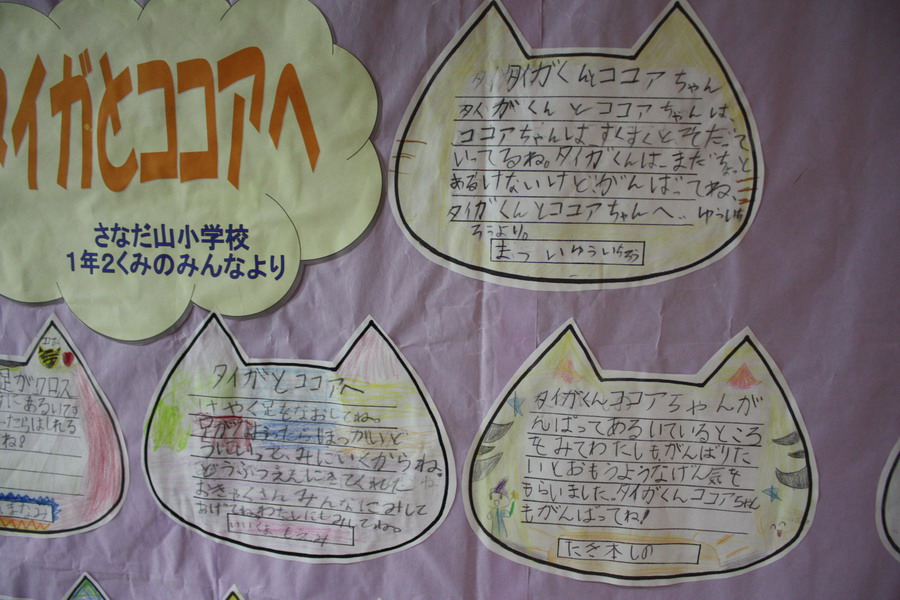 タイガとココアへ
さなだ山小学校
1年2くみのみんなより
タイガくんとココアちゃん
タイガくんとココアちゃんは、
ココアちゃんは、すくすくと、そだって
いってるね。タイガくんは、まだちょっと
あるけないけど、がんばってね、
タイガくんとココアちゃんへ、ゆういち
ろうより。
まついゆういちろう
足がクロス
ね!
タイガとココアへ
はやく足をなおしてね。
足がなおったらほっかいど
うにいって、みにいくからね。
どうぶつえんにきてくれた
おきゃくさんみんなにみして
あげてねわたしにもみしてね。
タイガくんとココアちゃんが
んばってあるいているところ
をみてわたしもがんばりた
いとおもうようなげん気を
もらいました。タイガくんココアちゃん
もがんばってね!
たき本しの